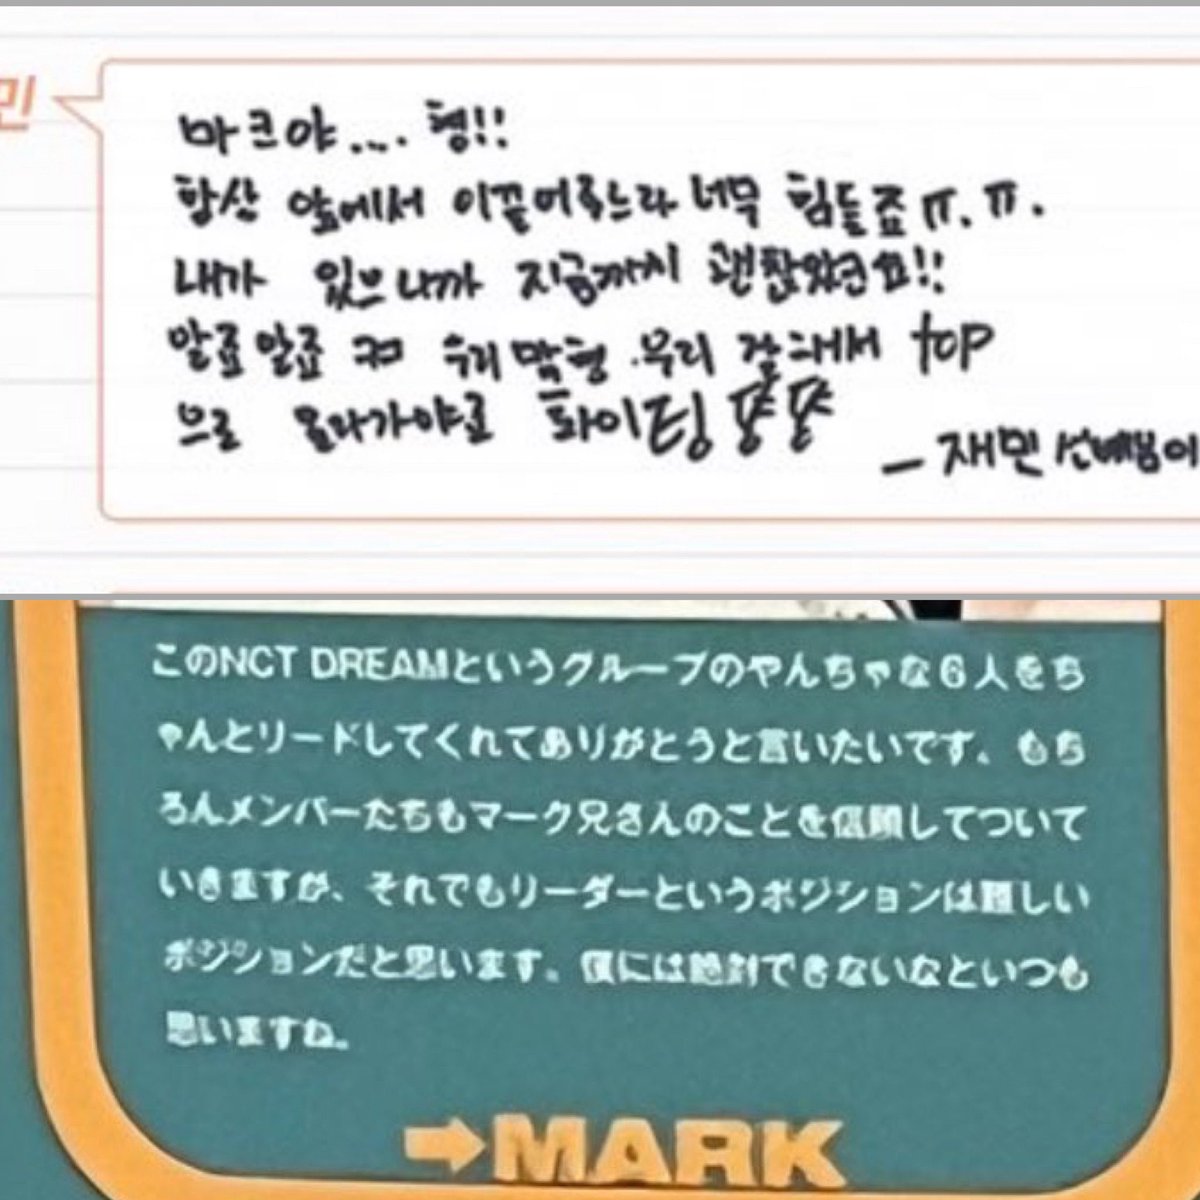 민
마크야.... 형!!
항상 앞에서 이끌어주느라 너무 힘들죠 ㅠ.ㅠ.
내가 있으니까 지금까지 괜찮았던요!!
알죠알죠 ㅋㅋ 우리 맏형 우리 잘해서 top
으로 올라가야죠 화이팅 뿅뿅
- 재민 선배님이
このNCT DREAMというグループのやんちゃな6人をち
ゃんとリードしてくれてありがとうと言いたいです。もち
ろんメンバーたちもマーク兄さんのことを信頼してついて
いきますが、それでもリーダーというポジションは難しい
ポジションだと思います。僕には絶対できないなといつも
思いますね。
➡MARK